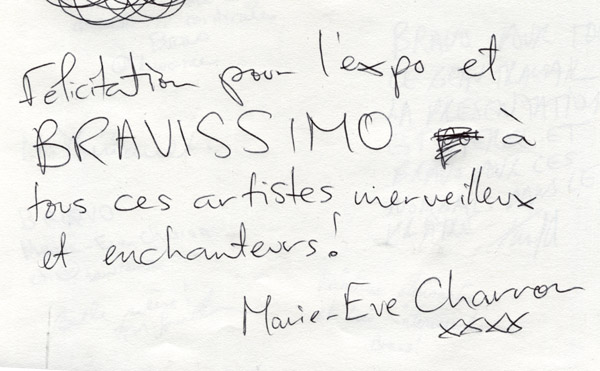 Félicitation pour l'expo et
BRAVISSIMO à
tous ces artistes merveilleux
et enchanteurs!
Marie-Eve Charron
xxxx